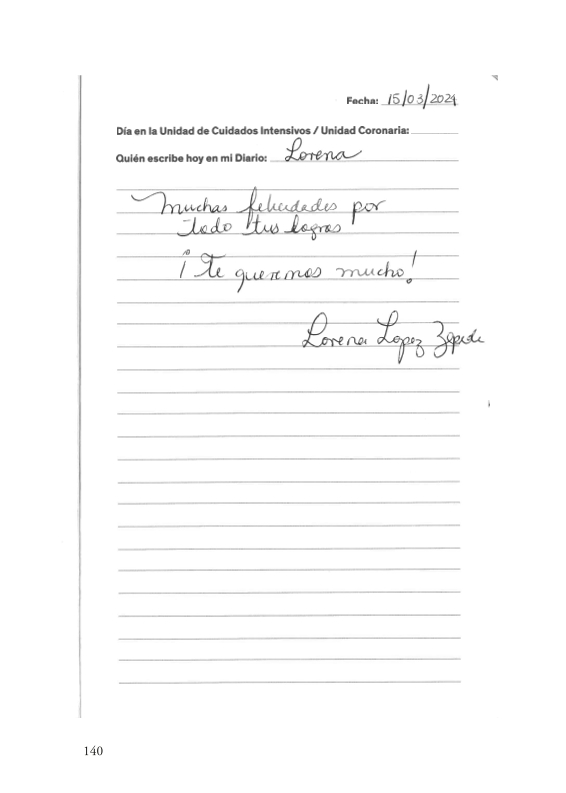 Fecha: 15/03/2024
Día en la Unidad de Cuidados Intensivos / Unidad Coronaria:
Quién escribe hoy en mi Diario: Lorena
Muchas felicidades por
todo tus logros
¡Te queremos mucho!
Lorena Lopez Zepeda
140